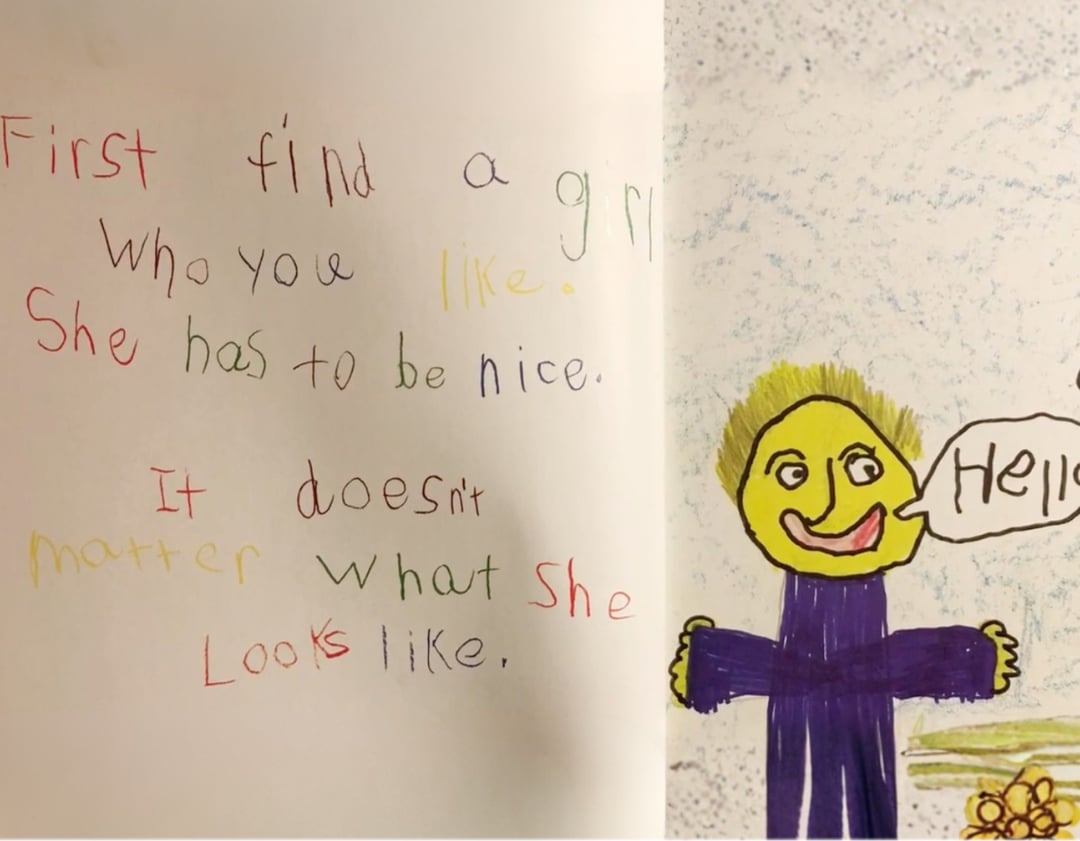 First find a girl
Who you like.
She has to be nice.
It doesn't
matter what She
Looks like.
Hello